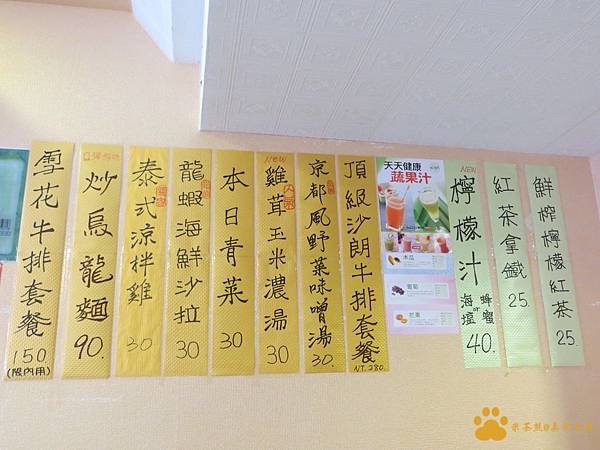 雪花牛排套餐
150
(限內用)
炒烏龍麵
90.
泰式涼拌雞
30
龍蝦海鮮沙拉
30
本日青菜
30
NEW
雞茸玉米濃湯
30
京都風野菜味噌湯
30.
頂級沙朗牛排套餐
NT.280.
天天健康
蔬果汁
木瓜
葡萄
芒果
NEW
檸檬汁
海塩 or 蜂蜜
40.
紅茶拿鐵
25.
鮮榨檸檬紅茶
25.